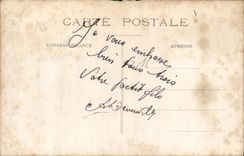 CARTE POSTALE
CORRESPONDANCE
ADRESSE
Je vous embrasse
bien tous trois
Votre petit fils